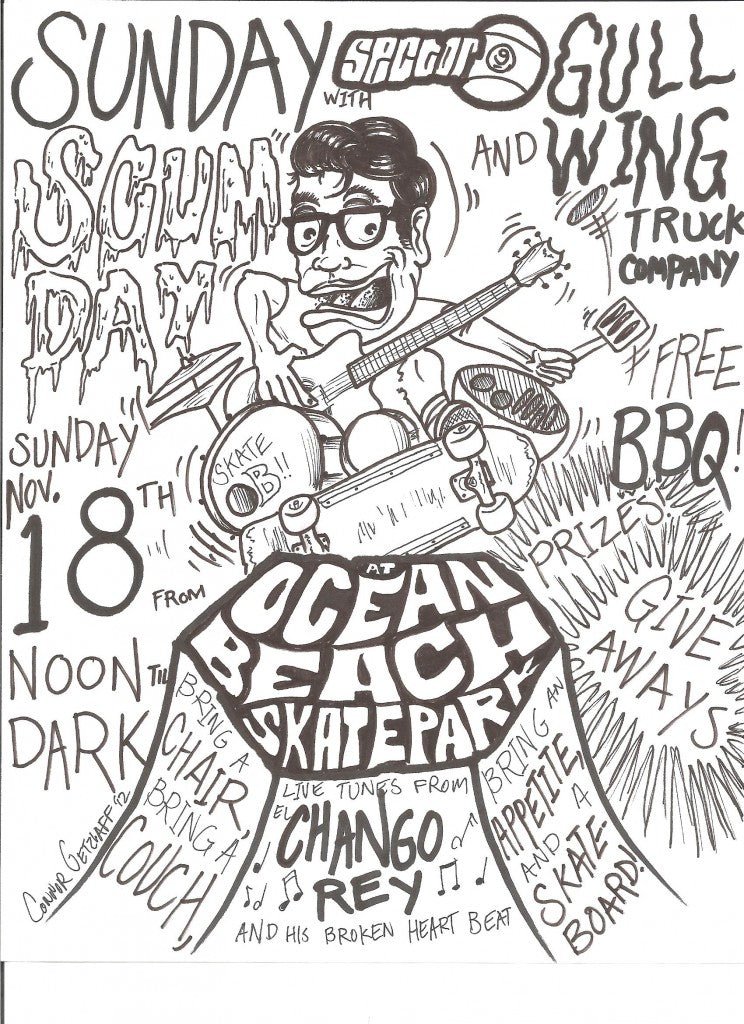 SUNDAY
SCUM
DAY
WITH
SECTOR 9
AND
GULL
WING
TRUCK
COMPANY
SUNDAY
NOV.
18TH
FROM
NOON TIL
DARK
FREE
BBQ!
PRIZES
GIVE
AWAYS
SKATE
OB!!
AT
OCEAN
BEACH
SKATEPARK
BRING A
CHAIR,
BRING A
COUCH,
LIVE TUNES FROM
EL
CHANGO
REY
AND HIS BROKEN HEART BEAT
BRING AN
APPETITE,
AND A
SKATE-
BOARD!
CONNOR GETZLAFF '12